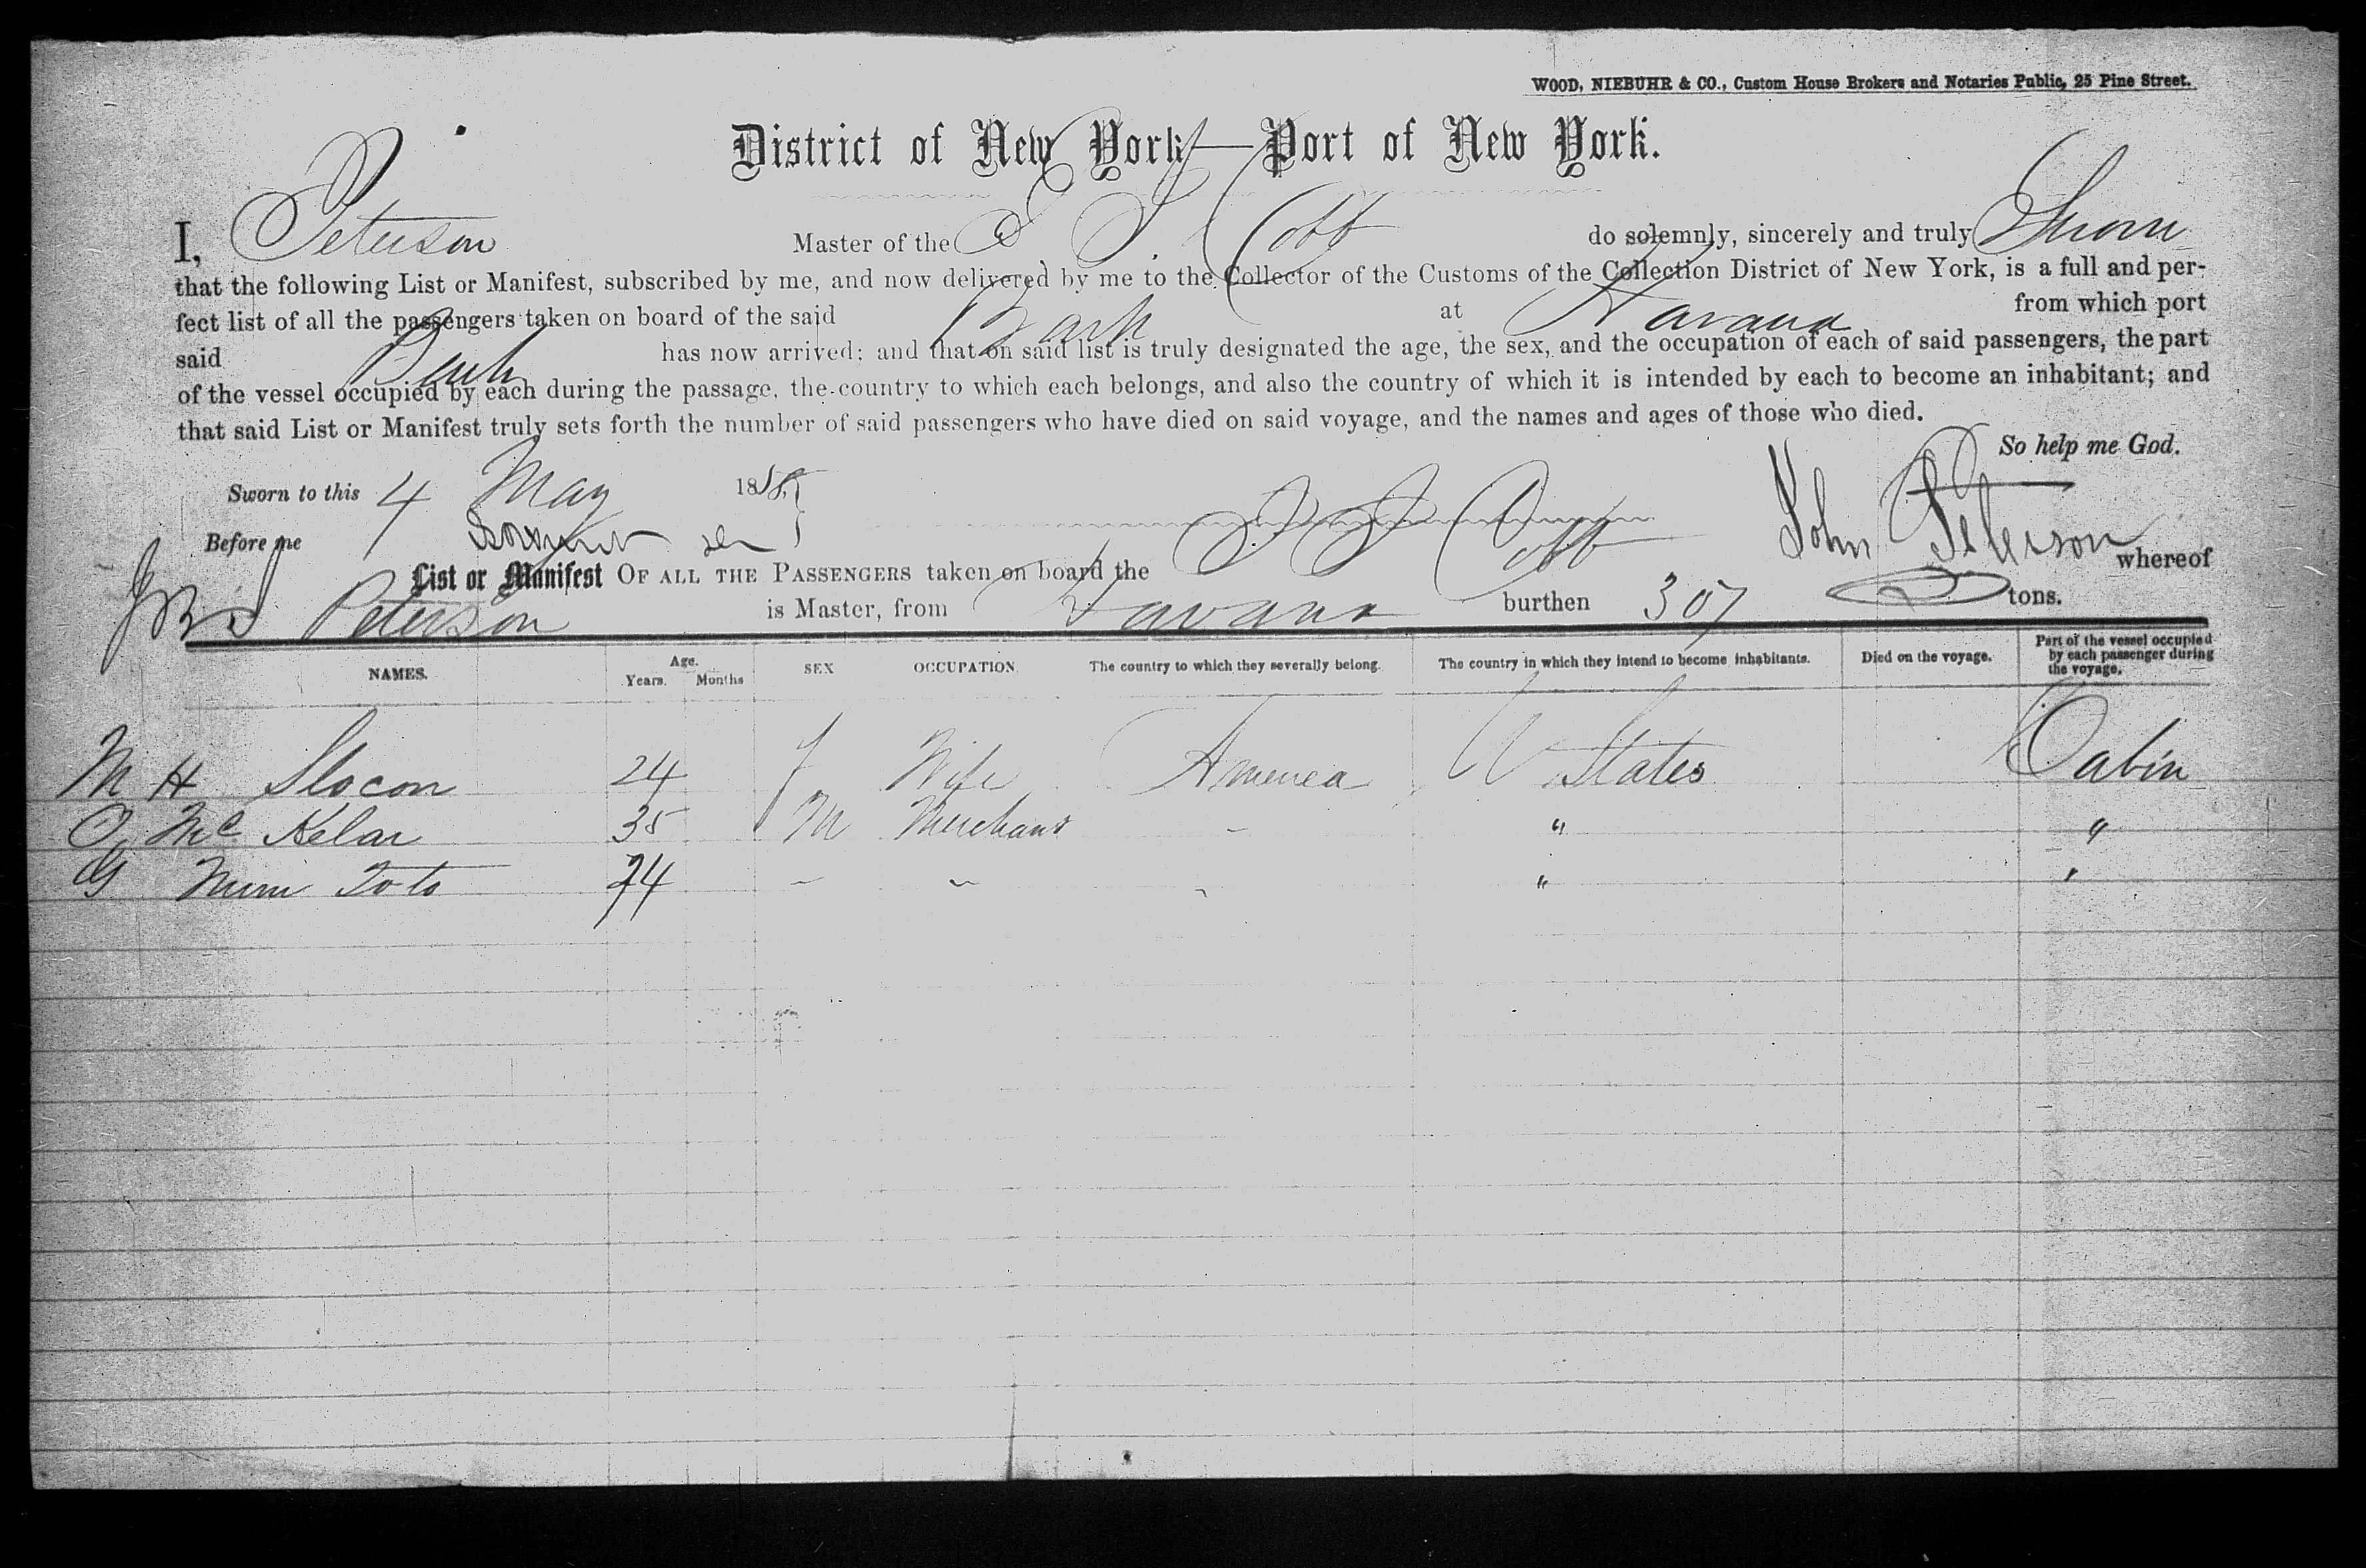 WOOD, NIEBUHR & CO., Custom House Brokers and Notaries Public, 25 Pine Street.
District of New York—Port of New York.
I, Peterson Master of the Cobb do solemnly, sincerely and truly Swore
that the following List or Manifest, subscribed by me, and now delivered by me to the Collector of the Customs of the Collection District of New York, is a full and per-
fect list of all the passengers taken on board of the said Bark at Havana from which port
said Bark has now arrived; and that on said list is truly designated the age, the sex, and the occupation of each of said passengers, the part
of the vessel occupied by each during the passage, the country to which each belongs, and also the country of which it is intended by each to become an inhabitant; and
that said List or Manifest truly sets forth the number of said passengers who have died on said voyage, and the names and ages of those who died.
So help me God.
Sworn to this 4 May 18
Before me John Peterson
List or Manifest OF ALL THE PASSENGERS taken on board the Cobb whereof
Peterson is Master, from Havana burthen 307 tons.
NAMES. Age. Years. Months SEX OCCUPATION The country to which they severally belong. The country in which they intend to become inhabitants. Died on the voyage. Part of the vessel occupied by each passenger during the voyage.
M H Slocon 24 f Wife America U States Cabin
Mc Kelar 35 M Merchant - " "
G 24 - - - " "